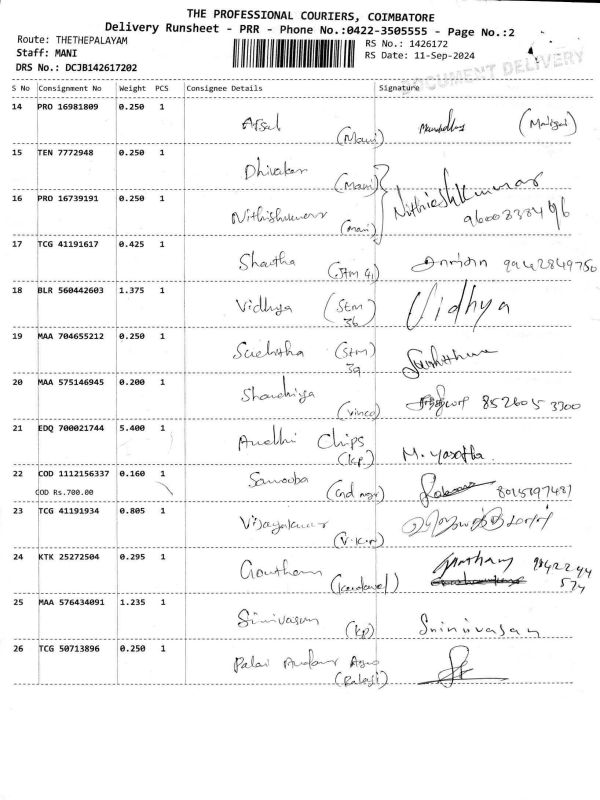 THE PROFESSIONAL COURIERS, COIMBATORE
Delivery Runsheet - PRR - Phone No.:0422-3505555 - Page No.:2
Route: THETHEPALAYAM
RS No.: 1426172
Staff: MANI
RS Date: 11-Sep-2024
DRS No.: DCJB142617202
DOCUMENT DELIVERY
S No Consignment No Weight PCS Consignee Details Signature
14 PRO 16981809 0.250 1
Afsal (Mani)
15 TEN 7772948 0.250 1
Dhivakar (Mani)
16 PRO 16739191 0.250 1
Nithishkumar (mani) Nithieshkumar
17 TCG 41191617 0.425 1
Shaitha (Stm 41) 9942849750
18 BLR 560442603 1.375 1
Vidhya (Stm 36) Vidhya
19 MAA 704655212 0.250 1
Suchitha (Stm 39)
20 MAA 575146945 0.200 1
(vinco) 852605 3300
21 EDQ 700021744 5.400 1
Chips (kp) M. Yasotha.
22 COD 1112156337 0.160 1
COD Rs.700.00
Sanooba
23 TCG 41191934 0.805 1
Vijayakumar (V.K.P)
24 KTK 25272504 0.295 1
Goutham
25 MAA 576434091 1.235 1
Srinivasan (kp) Sriniivasan
26 TCG 50713896 0.250 1
Palani Andavar
(Balaji)